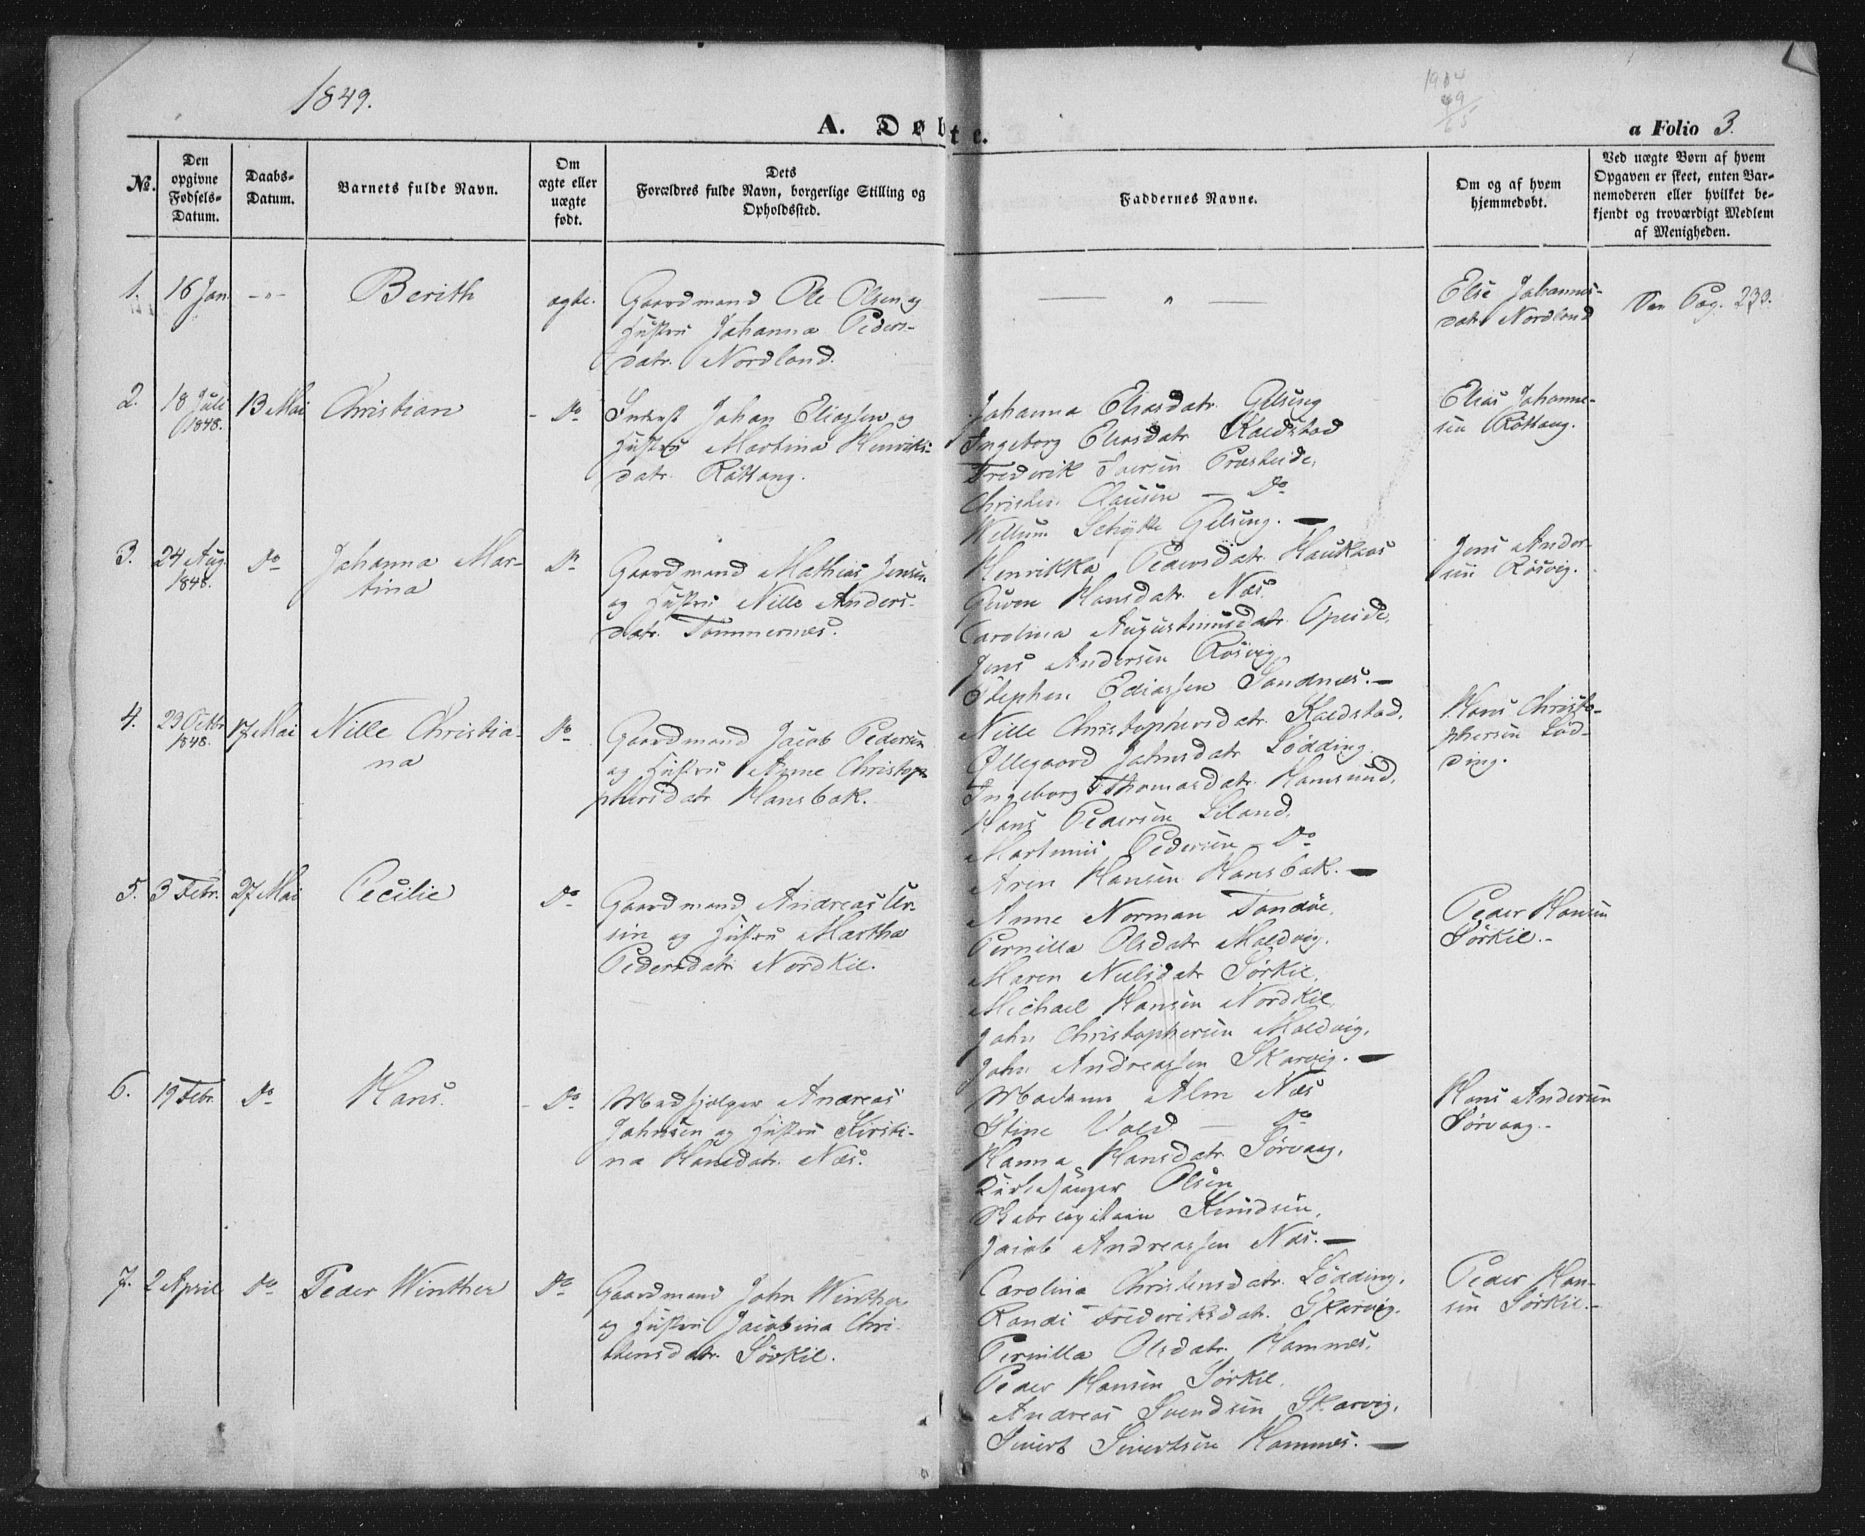 1849.
1914
49
65
A. Døbte.
a Folio 3.
No.
Den opgivne Fødsels-Datum.
Daabs-Datum.
Barnets fulde Navn.
Om ægte eller uægte født.
Dets Forældres fulde Navn, borgerlige Stilling og Opholdssted.
Faddernes Navne.
Om og af hvem hjemmedøbt.
Ved uægte Børn af hvem Opgaven er skeet, enten Barnemoderen eller hvilket bekjendt og troværdigt Medlem af Menigheden.
1. 16 Jan. -"- Berith ægte.
Gaardmand Ole Olsen og
Hustru Johanna Peders-
datr. Nordland.
— " —
Else Johannes-
datr Nordland
Pag. 233.
2. 18 Juli 1848. 13 Mai Christian Do
Inderst Johan Eliassen og
Hustru Martina Henriks-
datr. Röttang.
Johanna Eliasdatr. Gilsing
Ingeborg Eliasdatr Kaldstad
Frederik Iversen Presteide,
Christen Clausen — Do
Willum Schytte Gilsing. —
Elias Johanne-
sen Röttang.
3. 24 Aug. 1848. Do Johanna Mar-
tina Do
Gaardmand Mathias Jensen
og Hustru Nille Anders-
datr. Tömmernes.
Henrikka Pedersdatr. Haukaas
Hansdatr. Næs.
Carolina Augustinusdatr. Opeide,
Jens Andersen Rösvig,
Stephen Ediassen Sandnæs. —
Jens Ander-
sen Rösvig.
4. 23 Octbr 1848. 17 Mai Nille Christia-
na Do
Gaardmand Jacob Pedersen
og Hustru Anne Christop-
phersdatr Hansbak.
Nille Christophersdatr. Kaldstad,
Øllegaard Johnsdatr Lödding.
Ingeborg Thomasdatr. Hamsund,
Hans Pedersen Liland,
Martinus Pedersen Do
Aren Hansen Hansbak. —
Hans Christo-
phersen Löd-
ding.
5. 3 Febr. 27 Mai Cecilie Do
Gaardmand Andreas
sen og Hustru Martha
Pedersdatr Nordkil.
Anne Norman Tandöe,
Pernilla Olsdatr Maldvig.
Maren Nielsdatr Sörkil,
Michael Hansen Nordkil,
John Christophersen Maldvig,
John Andreassen Skarvig. —
Peder Hansen
Sörkil.-
6. 19 Febr. Do Hans. Do
Medhjelper Andreas
Johnsen og Hustru Kirsti-
na Hansdatr. Næs.
Madam Alm Næs
Stine Vold — Do
Hanna Hansdatr. Sörvaag,
Kirkesanger Olsen
Knudsen,
Jacob Andreassen Næs. —
Hans Andersen
Sörvaag.-
7. 2 April Do Peder Winther Do
Gaardmand John Winther
og Hustru Jacobina Chri-
stensdatr. Sörkil.
Carolina Christensdatr. Lödding,
Randi Frederiksdatr. Skarvig.
Pernilla Olsdatr. Hamnes,
Peder Hansen Sörkil,
Andreas Svendsen Skarvig,
Sivert Sivertsen Hamnes. —
Peder Han-
sen Sörkil.-